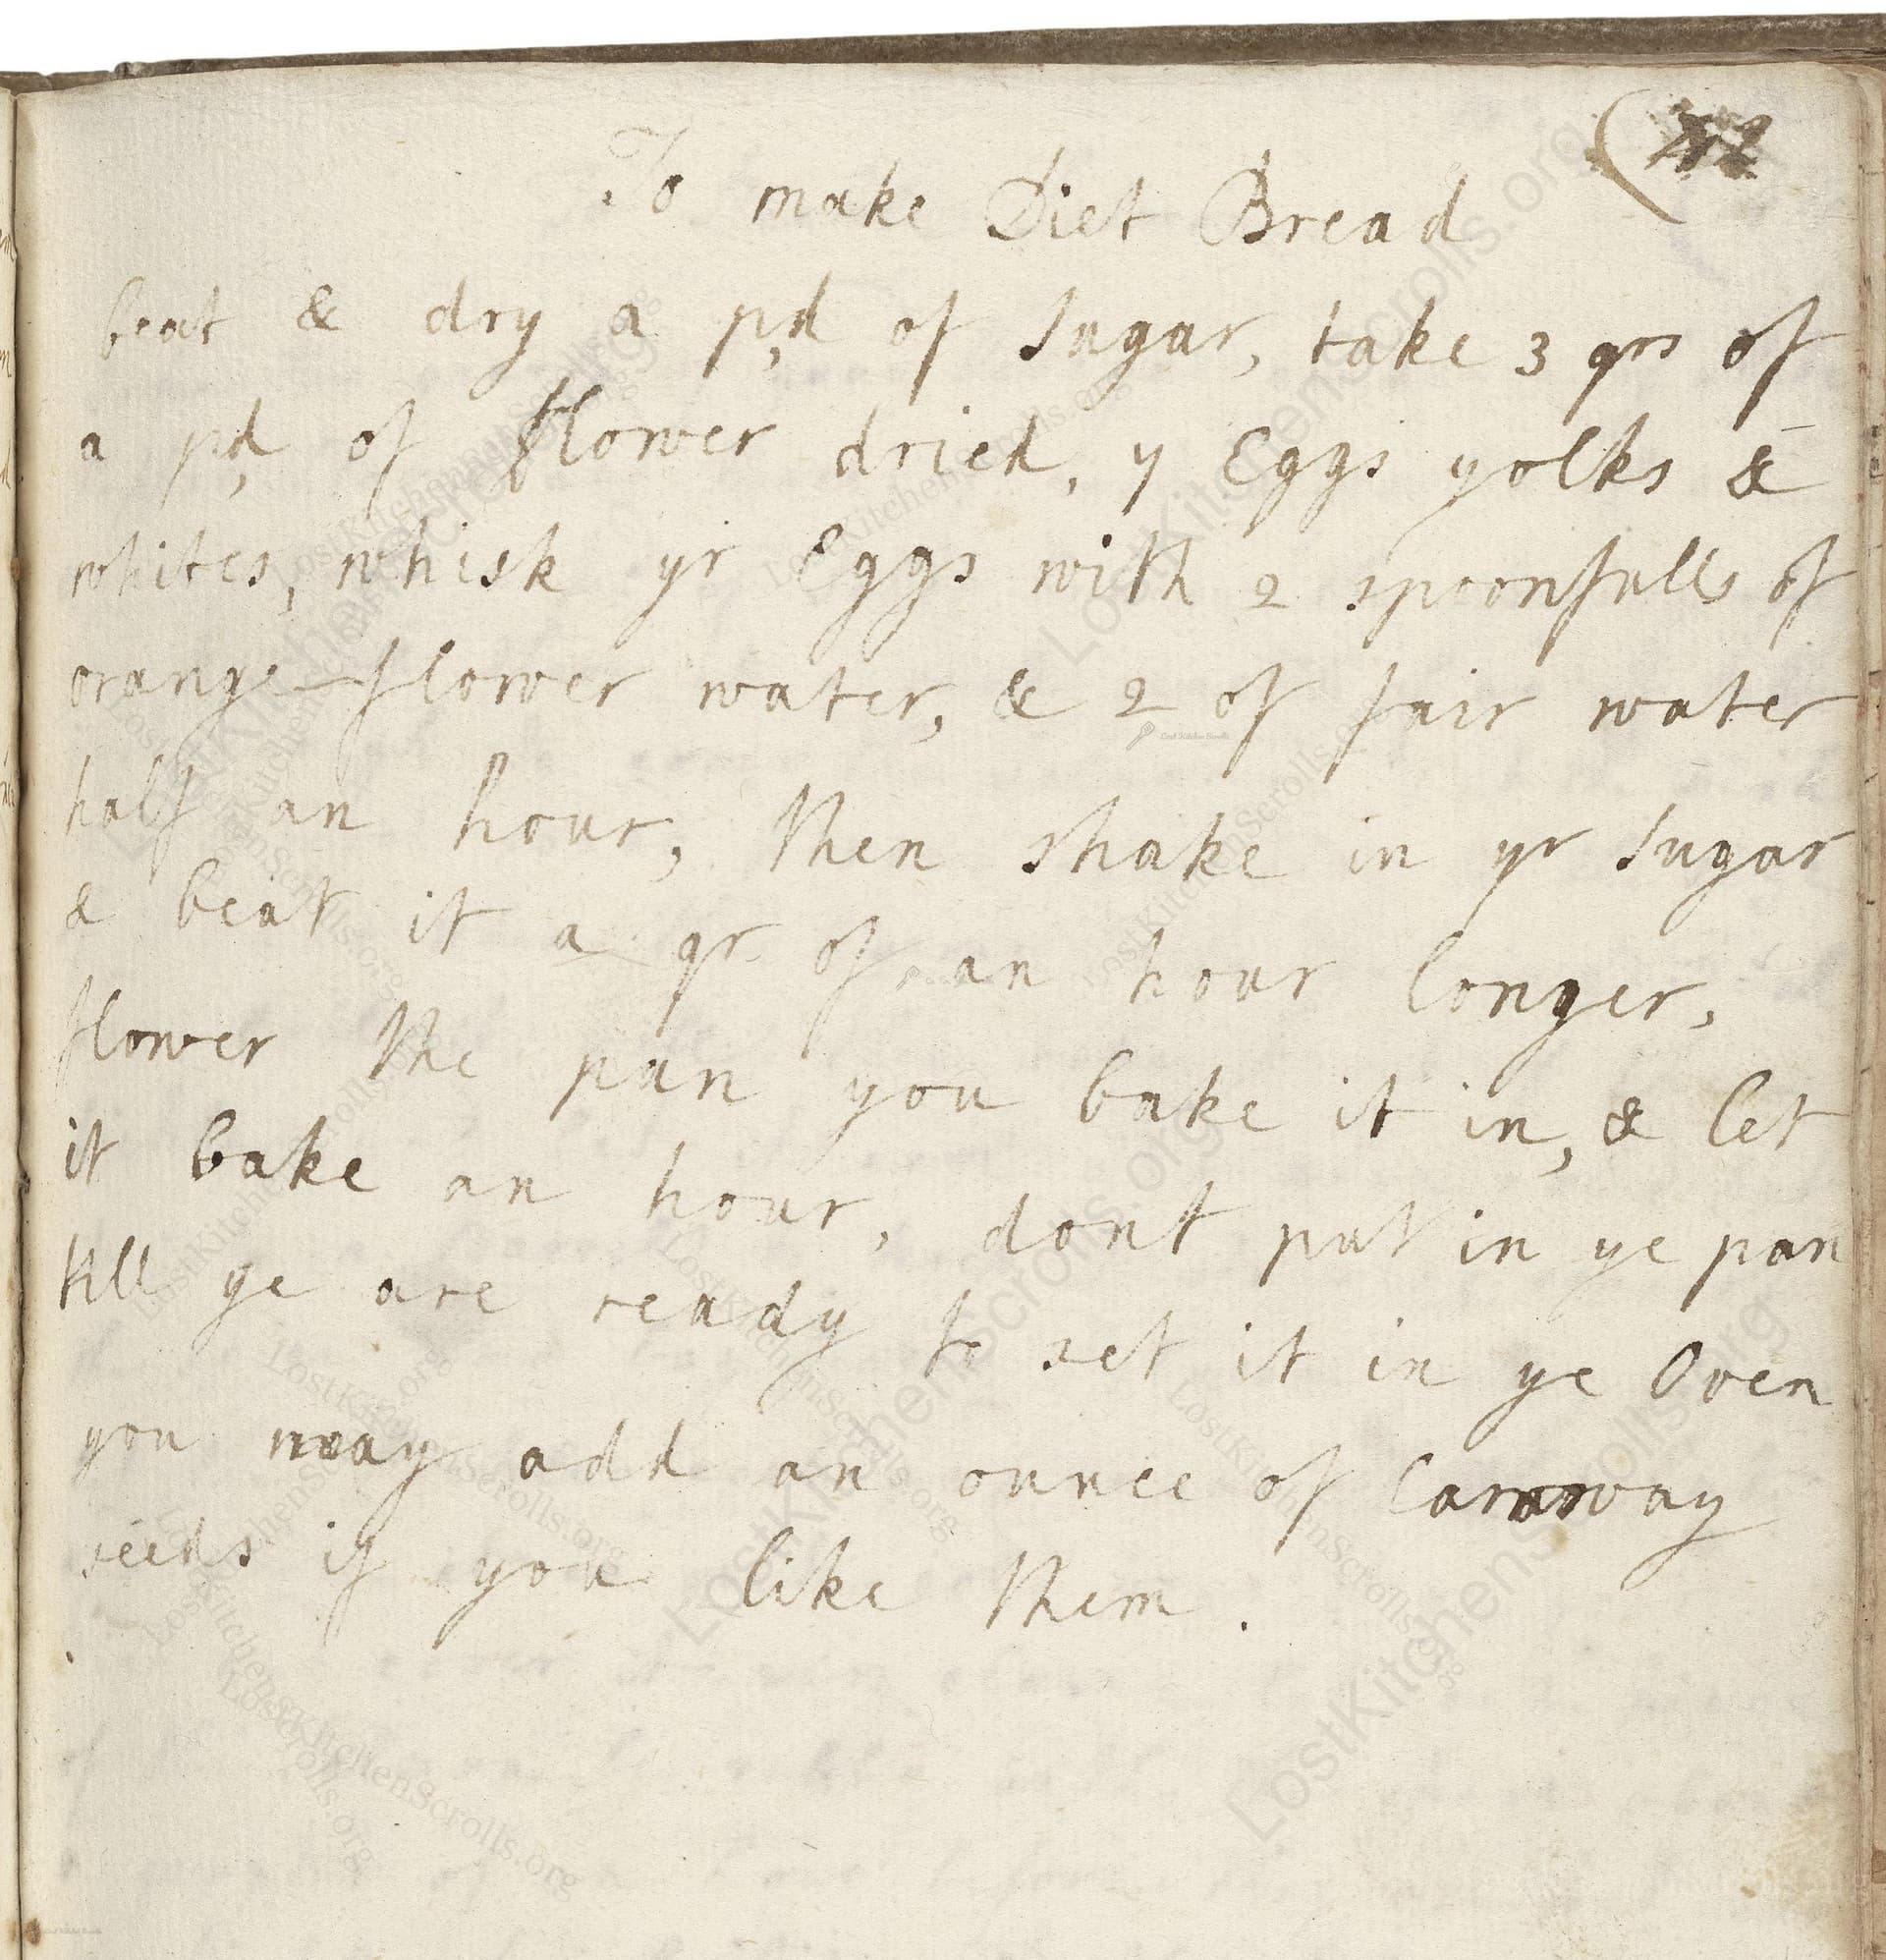 To make Diet Bread
beat & dry a pd of Sugar, take 3 qrs of
a pd of flower dried, 7 Eggs yolks &
whites, whisk yr Eggs with 2 spoonfulls of
orange-flower water, & 2 of fair water
half an hour, then shake in yr Sugar
& beat it a qr of an hour longer,
flower the pan you bake it in, & let
it bake an hour, dont put in ye pan
till ye are ready to set it in ye Oven
you may add an ounce of Carraway
seeds if you like them.
LostKitchenScrolls.org